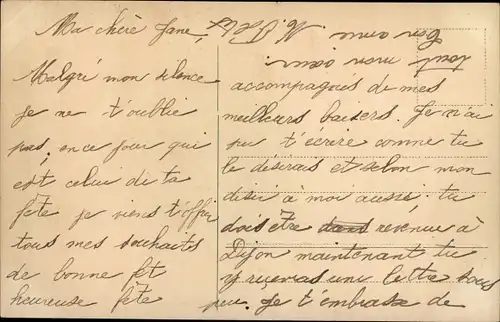 Ma chère Jane,
Malgré mon silence
je ne t'oublie
pas, en ce jour qui
est celui de ta
fête je viens t'offrir
tous mes souhaits
de bonne et
heureuse fête
accompagnés de mes
meilleurs baisers. Je n'ai
pu t'écrire comme tu
le désirais et selon mon
désir à moi aussi. tu
dois être dans revenue à
Dijon maintenant tu
y recevras une lettre sous
peu. Je t'embrasse de
tout mon cœur
Ton amie